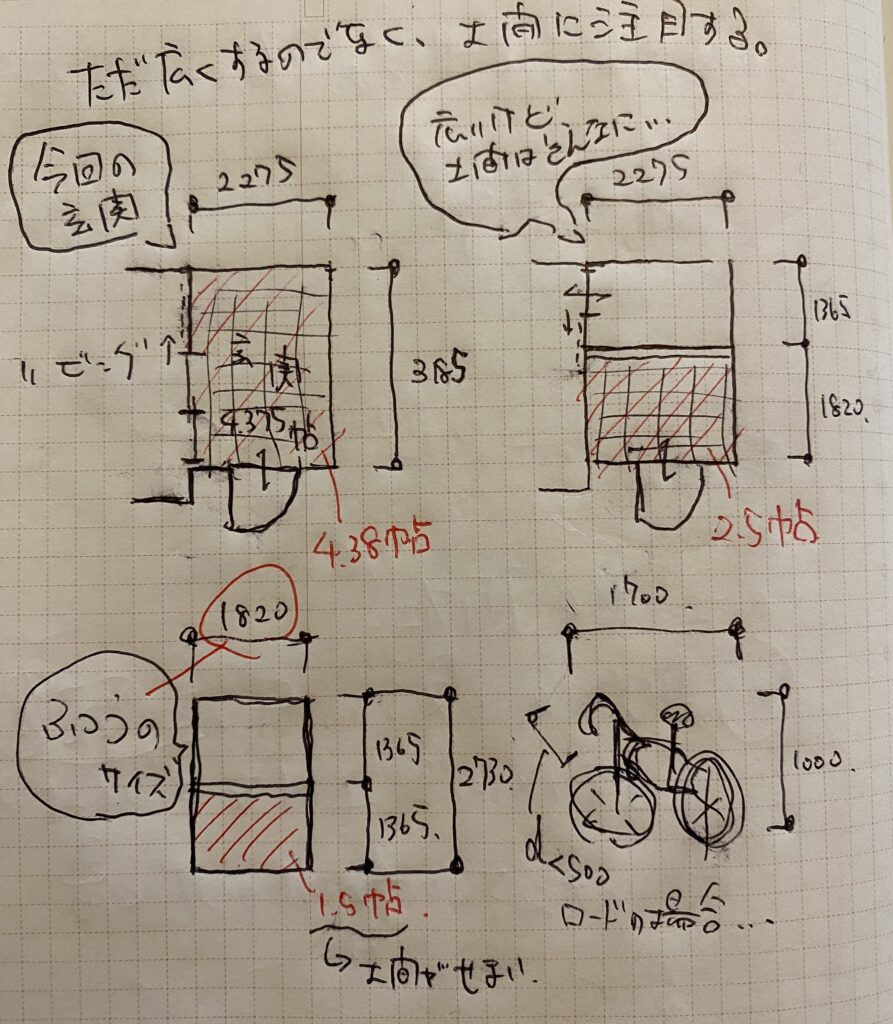 ただ広くするのでなく、土間に注目する。
今回の
玄関
広いけど
土間はそんなに…
2275
2275
リビング↑
玄関
4.375帖
3185
4.38帖
1365
1820.
2.5帖
1820
ふつうの
サイズ
1365
1365.
2730.
1.5帖.
↳土間がせまい.
1700.
1000.
d<500
ロードの場合…